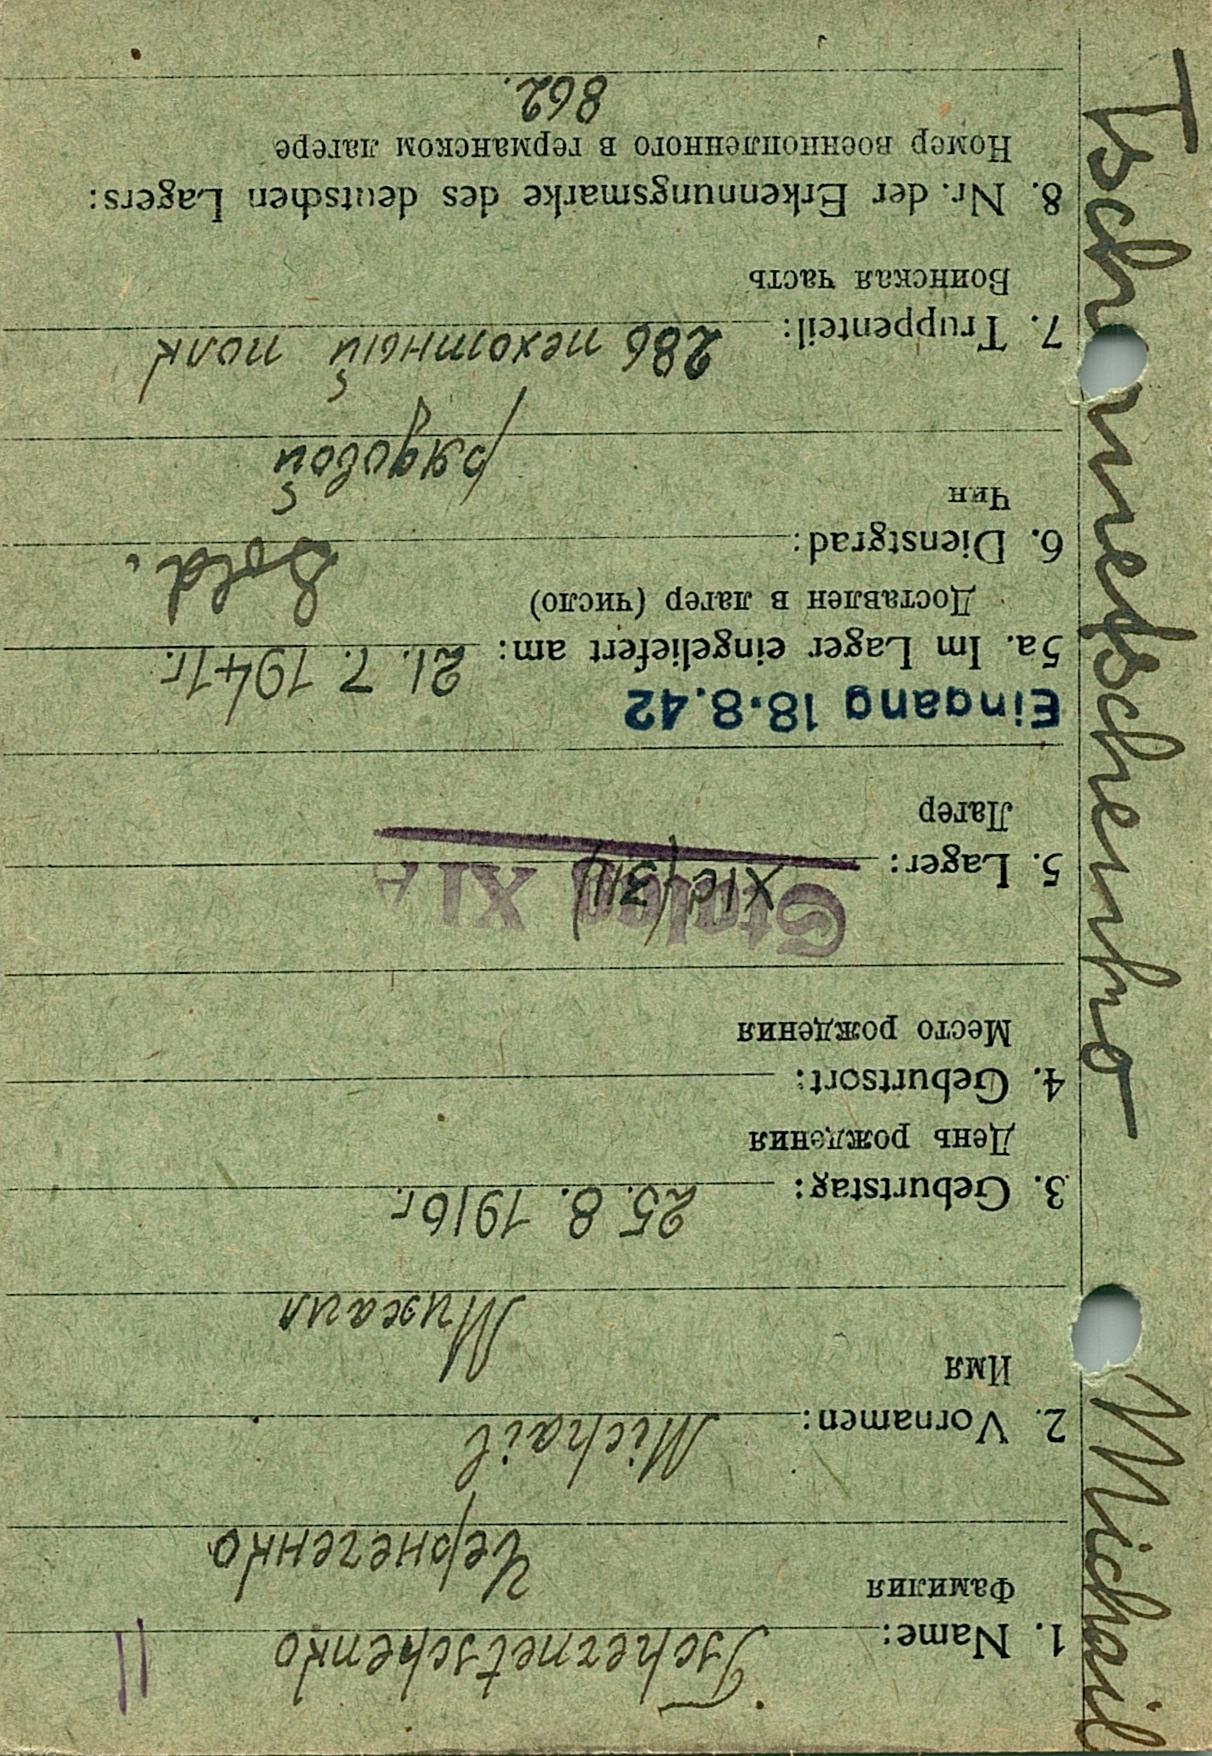 Tschernetschenko Michail
1. Name: Tschernetschenko
Фамилия
Чернеченко
2. Vornamen: Michail
Имя
Михаил
3. Geburtstag: 25. 8. 1916 г.
День рождения
4. Geburtsort:
Место рождения
Stalag XI A
5. Lager: XI C/311/
Лагер
Eingang 18.8.42
5a. Im Lager eingeliefert am: 21. 7. 1941 г.
Доставлен в лагер (число)
6. Dienstgrad: Sold.
Чин
рядовой
7. Truppenteil: 286 пехотный полк
Воинская часть
8. Nr. der Erkennungsmarke des deutschen Lagers:
Номер военнопленного в германском лагере
862.